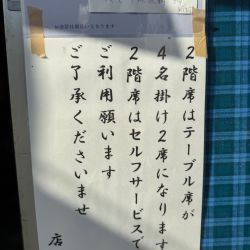 ２階席はテーブル席が
４名掛け２席になります
２階席はセルフサービスで
ご利用願います
ご了承くださいませ
店